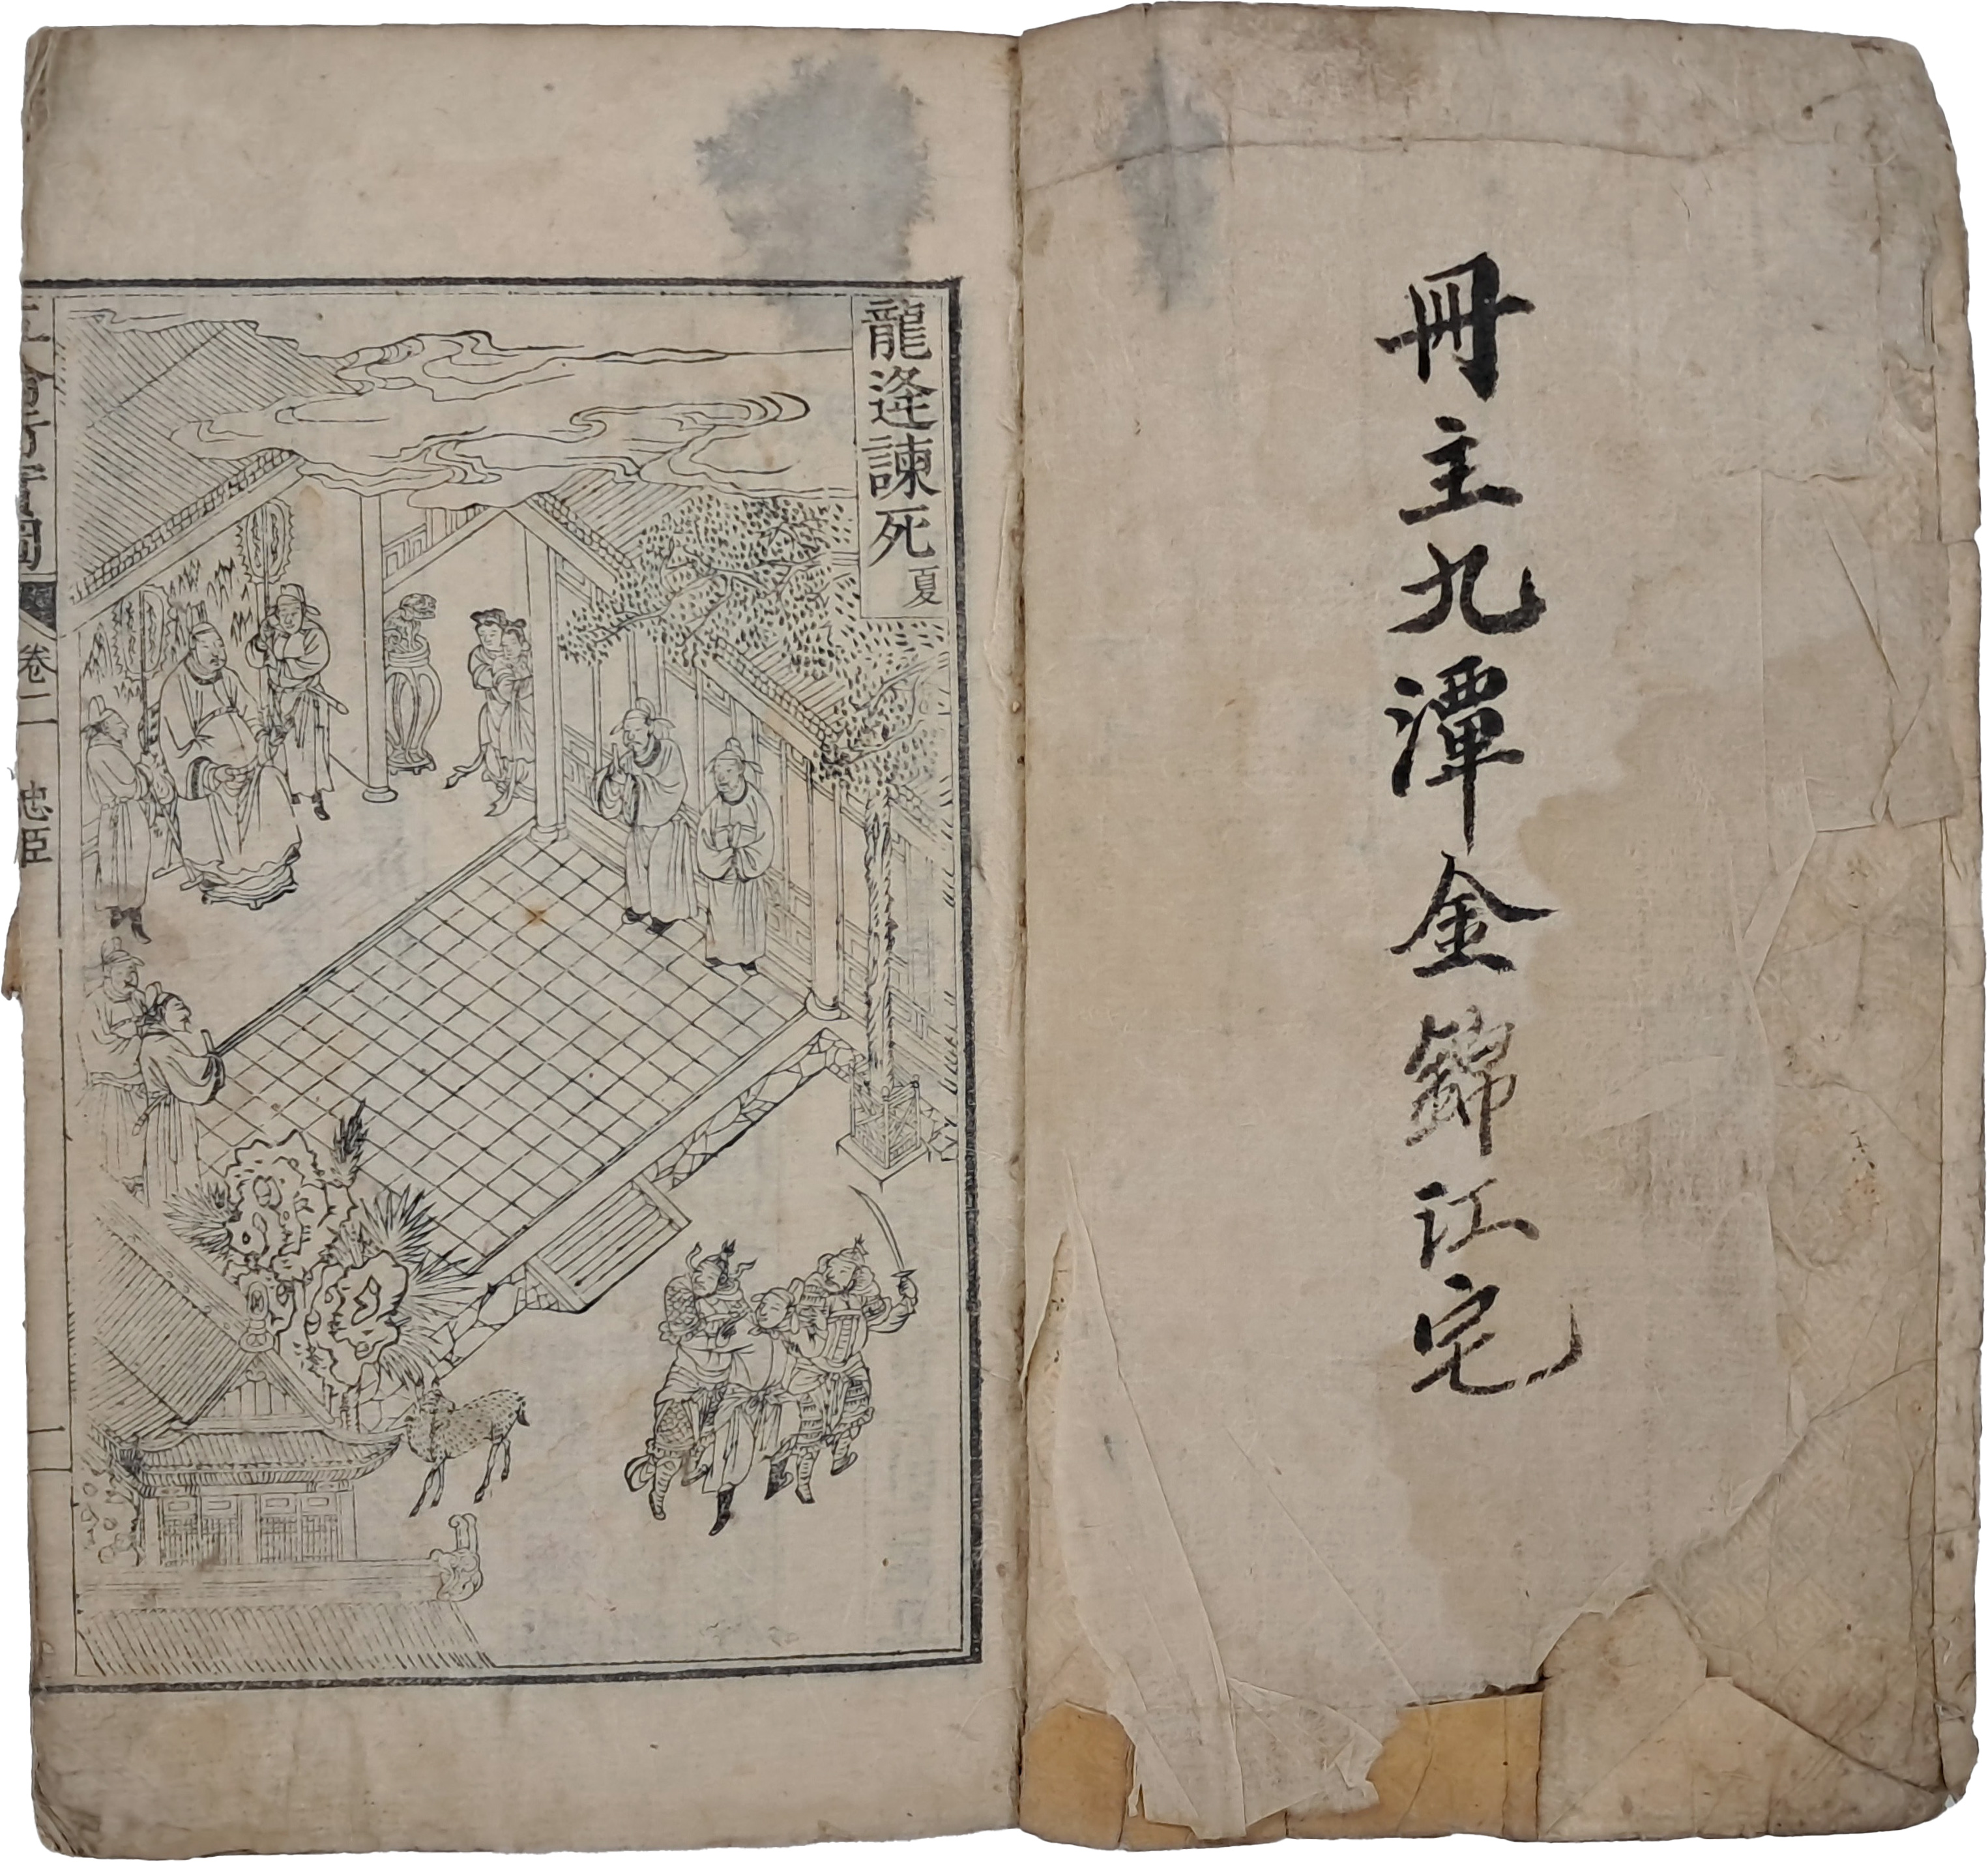 冊主九潭金錦江宅
龍逄諫死 夏
五倫行實圖 卷二 忠臣